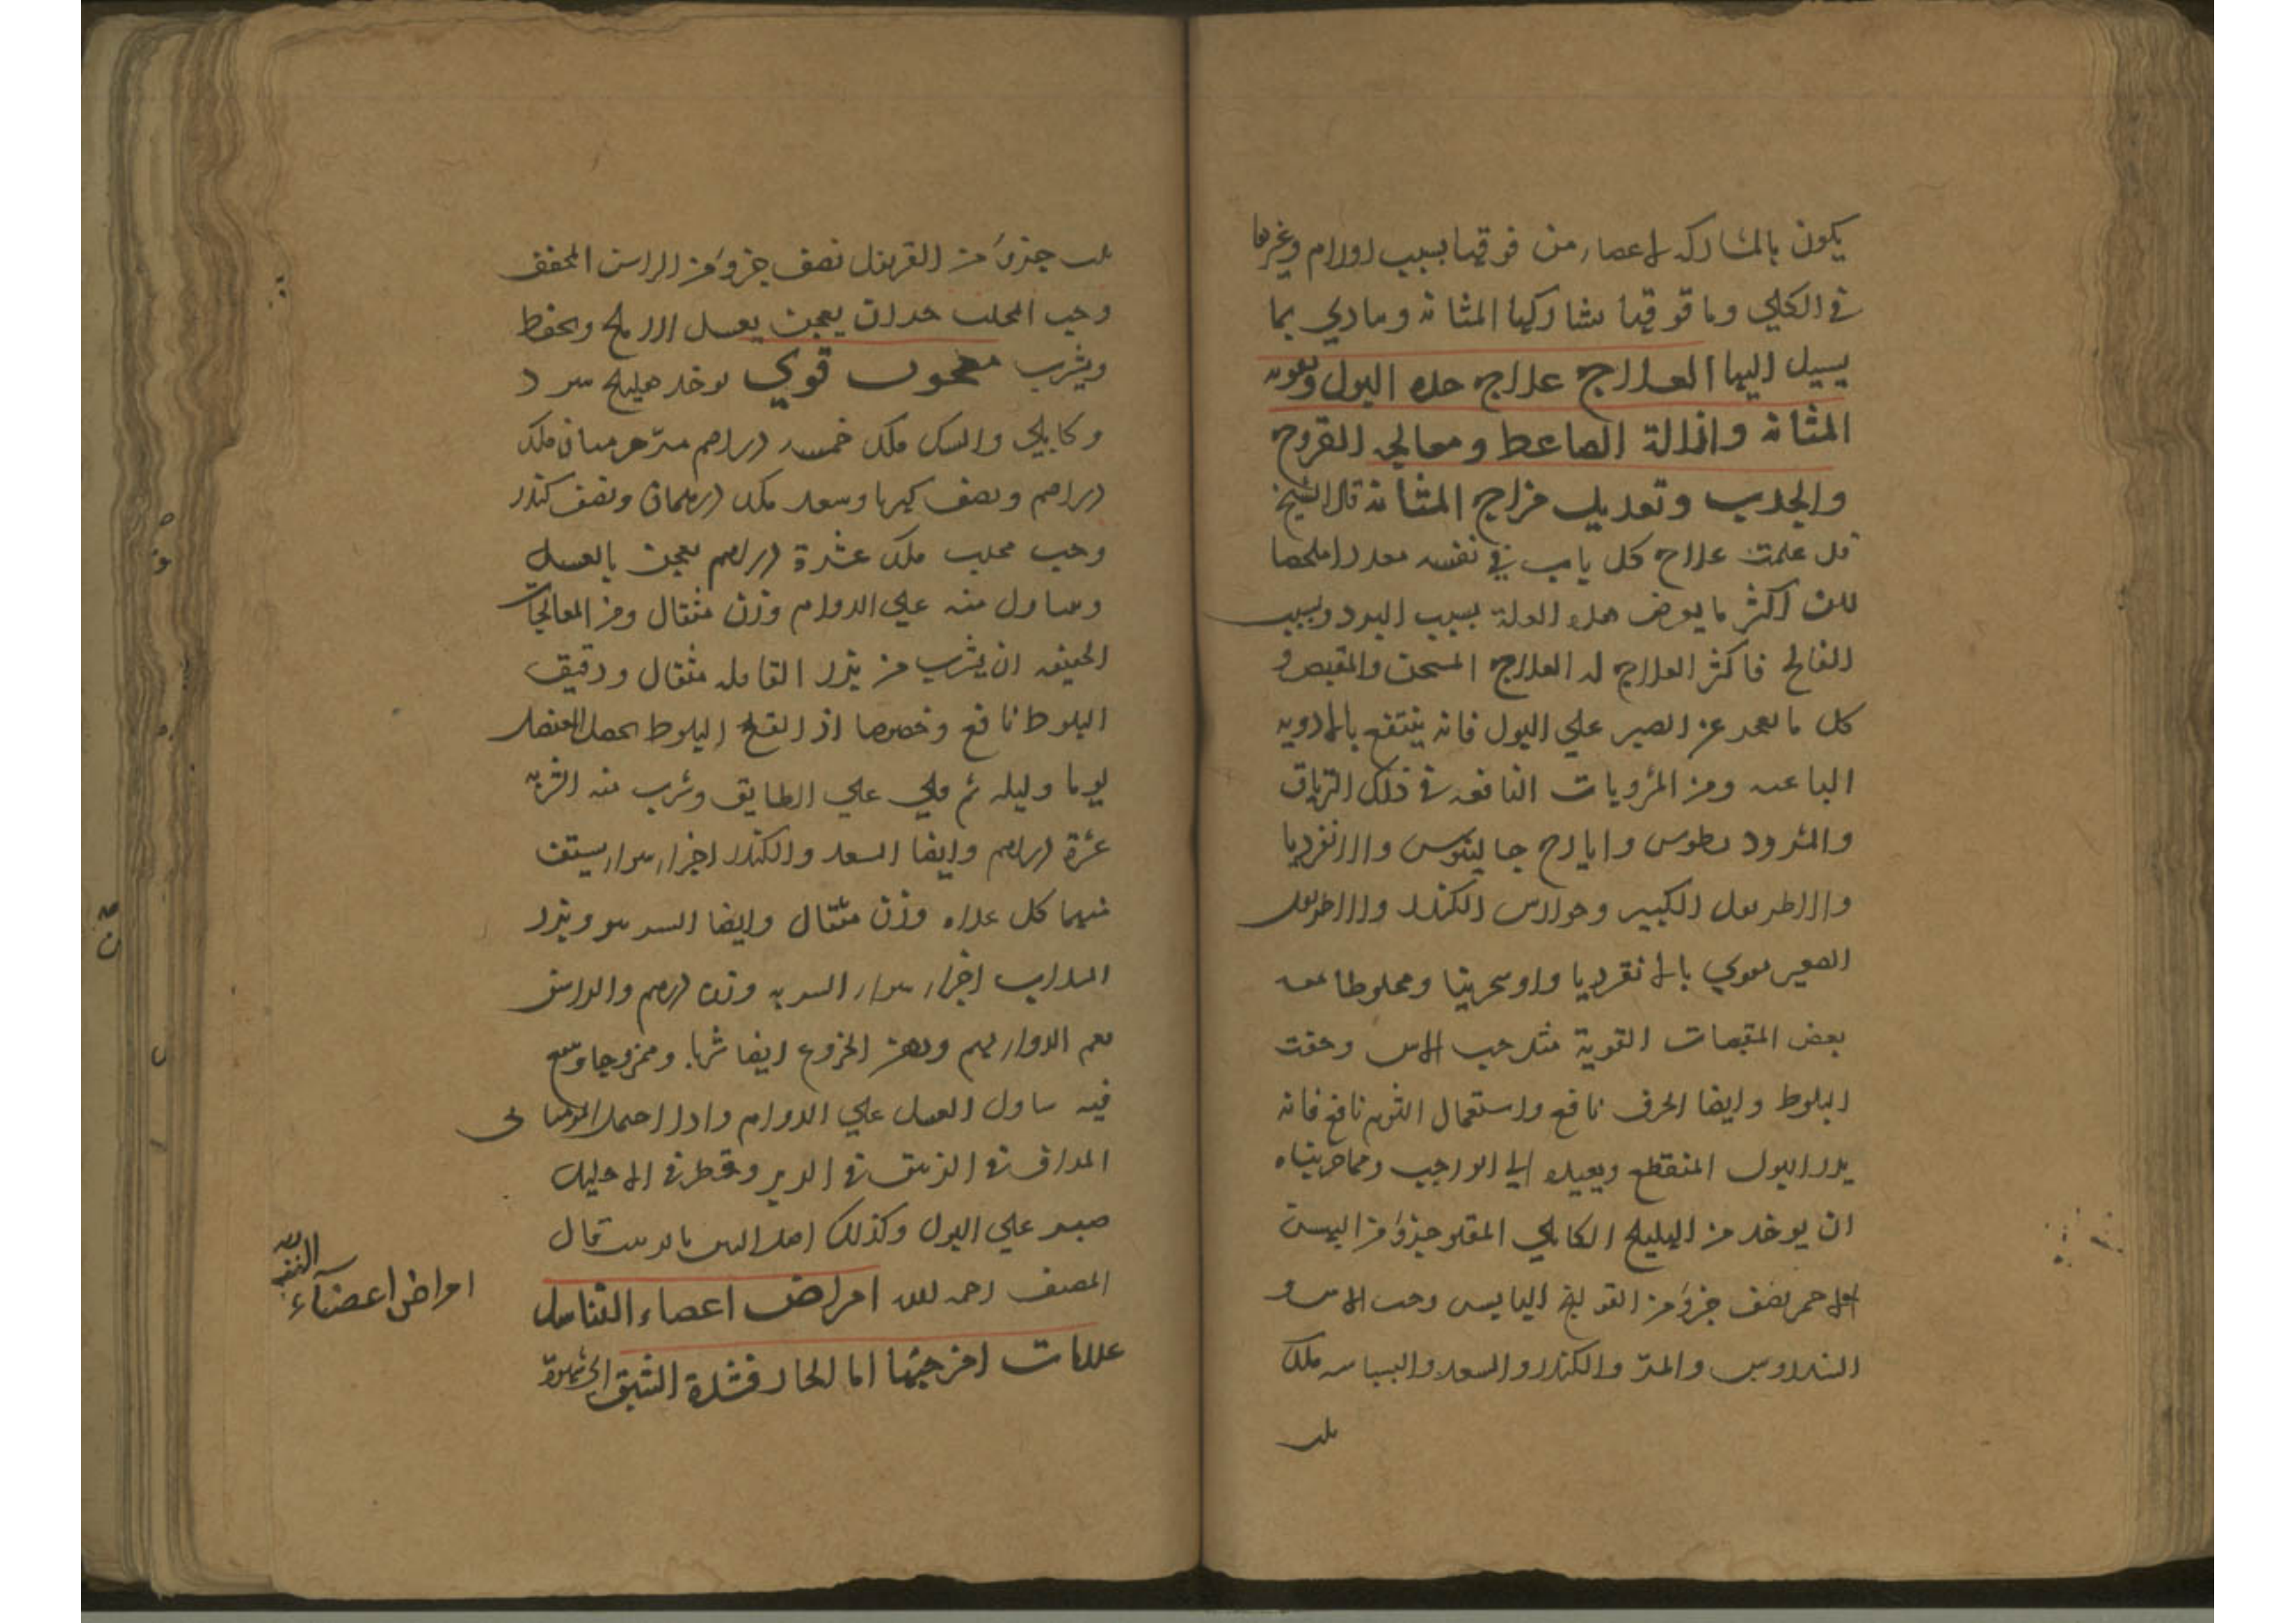 يكون بالمشاركه لاعصاء من فوقها بسبب اورام وغيرها
في الكلي وما فوقها تشاركها المثانه ومادي بما
يسيل اليها العلاج علاج حده البول وتقويه
المثانه وازالة الضاغط ومعالجه القروح
والجذب وتعديل مزاج المثانه قال الشيخ
قد علمت علاج كل باب في نفسه
لكن اكثر ما يعرض هذه العلة بسبب البرد وبسبب
الفالج فاكثر العلاج له العلاج المسخن والمقبض و
كل ما يعجز عن الصبر علي البول فانه ينتفع بالادويه
الباهيه ومن المشروبات النافعه في ذلك الترياق
والمثرود يطوس وايارج جالينوس والانقرديا
والاطريفل الكبير وجوارس الكندر والاطريفل
الصغير مقوي بالانقرديا واوسحرينا ومخلوطا معه
بعض المقبضات القوية مثل حب الاس وجفت
البلوط وايضا الحرف نافع واستعمال الثوم نافع فانه
يدر البول المنقطع ويعيده الي الواجب ومما جربناه
ان يوخذ من الهليلج الكابلي المقلو جزؤ من البهمن
الاحمر نصف جزؤ من الفوتنج اليابس وحب الاس و
السندروس والمر والكندر والسعد والبسباسه
ثلث جزؤ من القرنفل نصف جزؤ من الراسن المجفف
وحب المحلب جزان يعجن بعسل الاملج ويحفظ
ويشرب معجون قوي يوخذ هليلج اسود
وكابلي والسك خمسه دراهم مر جرمسان
دراهم ونصف كهربا وسعد درهمان ونصف كندر
وحب محلب عشرة دراهم يعجن بالعسل
ويتناول منه علي الدوام وزن مثقال ومن المعالجات
الخفيفه ان يشرب من بزر الفاقله مثقال ودقيق
البلوط نافع وخصوصا اذا انقع البلوط بخل العنصل
يوما وليله ثم قلي علي الطابق وشرب منه الشربه
عشرة دراهم وايضا السعد والكندر اجزاء سواء يستف
منهما كل غداه وزن مثقال وايضا السرمو وبزر
السداب اجزاء سواء الشربه وزن درهم والراسن
نعم الدواء لهم ودهن الخروع ايضا شربا وممزوجا وينفع
فيه تناول العسل علي الدوام واذا احتمل المومياني
المداف في الزنبق في الدبر وقطر في الاحليل
صبر علي البول وكذلك قال
المصنف رحمه الله امراض اعضاء التناسل
علامات امزجتها اما الحار فشدة الشبق
امراض اعضآء